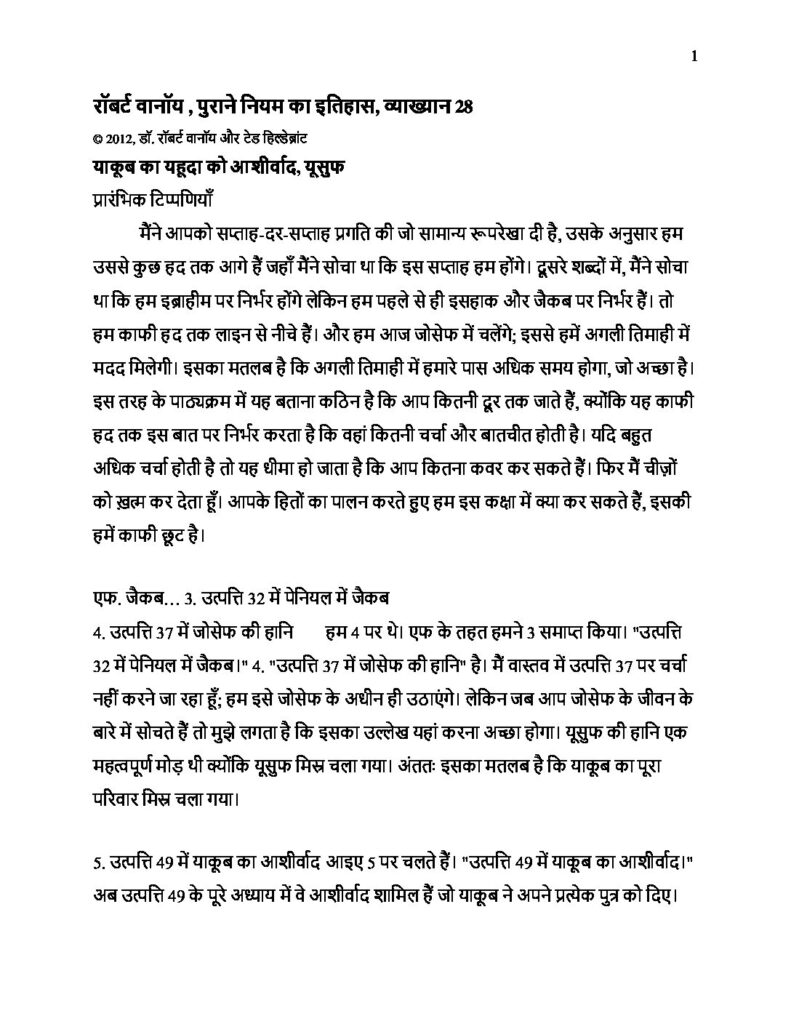 1
रॉबर्ट वानॉय , पुराने नियम का इतिहास, व्याख्यान 28
© 2012, डॉ. रॉबर्ट वानॉय और टेड हिल्डेब्रांट
याकूब का यहूदा को आशीर्वाद, यूसुफ
प्रारंभिक टिप्पणियाँ
मैंने आपको सप्ताह-दर-सप्ताह प्रगति की जो सामान्य रूपरेखा दी है, उसके अनुसार हम
उससे कुछ हद तक आगे हैं जहाँ मैंने सोचा था कि इस सप्ताह हम होंगे। दूसरे शब्दों में, मैंने सोचा
था कि हम इब्राहीम पर निर्भर होंगे लेकिन हम पहले से ही इसहाक और जैकब पर निर्भर हैं। तो
हम काफी हद तक लाइन से नीचे हैं। और हम आज जोसेफ में चलेंगे; इससे हमें अगली तिमाही में
मदद मिलेगी। इसका मतलब है कि अगली तिमाही में हमारे पास अधिक समय होगा, जो अच्छा है।
इस तरह के पाठ्यक्रम में यह बताना कठिन है कि आप कितनी दूर तक जाते हैं, क्योंकि यह काफी
हद तक इस बात पर निर्भर करता है कि वहां कितनी चर्चा और बातचीत होती है। यदि बहुत
अधिक चर्चा होती है तो यह धीमा हो जाता है कि आप कितना कवर कर सकते हैं। फिर मैं चीज़ों
को ख़त्म कर देता हूँ। आपके हितों का पालन करते हुए हम इस कक्षा में क्या कर सकते हैं, इसकी
हमें काफी छूट है।
एफ. जैकब... 3. उत्पत्ति 32 में पेनियल में जैकब
4. उत्पत्ति 37 में जोसेफ की हानि हम 4 पर थे। एफ के तहत हमने 3 समाप्त किया। "उत्पत्ति
32 में पेनियल में जैकब।" 4. "उत्पत्ति 37 में जोसेफ की हानि" है। मैं वास्तव में उत्पत्ति 37 पर चर्चा
नहीं करने जा रहा हूँ; हम इसे जोसेफ के अधीन ही उठाएंगे। लेकिन जब आप जोसेफ के जीवन के
बारे में सोचते हैं तो मुझे लगता है कि इसका उल्लेख यहां करना अच्छा होगा। यूसुफ की हानि एक
महत्वपूर्ण मोड़ थी क्योंकि यूसुफ मिस्र चला गया। अंततः इसका मतलब है कि याकूब का पूरा
परिवार मिस्र चला गया।
5. उत्पत्ति 49 में याकूब का आशीर्वाद आइए 5 पर चलते हैं। "उत्पत्ति 49 में याकूब का आशीर्वाद।"
अब उत्पत्ति 49 के पूरे अध्याय में वे आशीर्वाद शामिल हैं जो याकूब ने अपने प्रत्येक पुत्र को दिए।